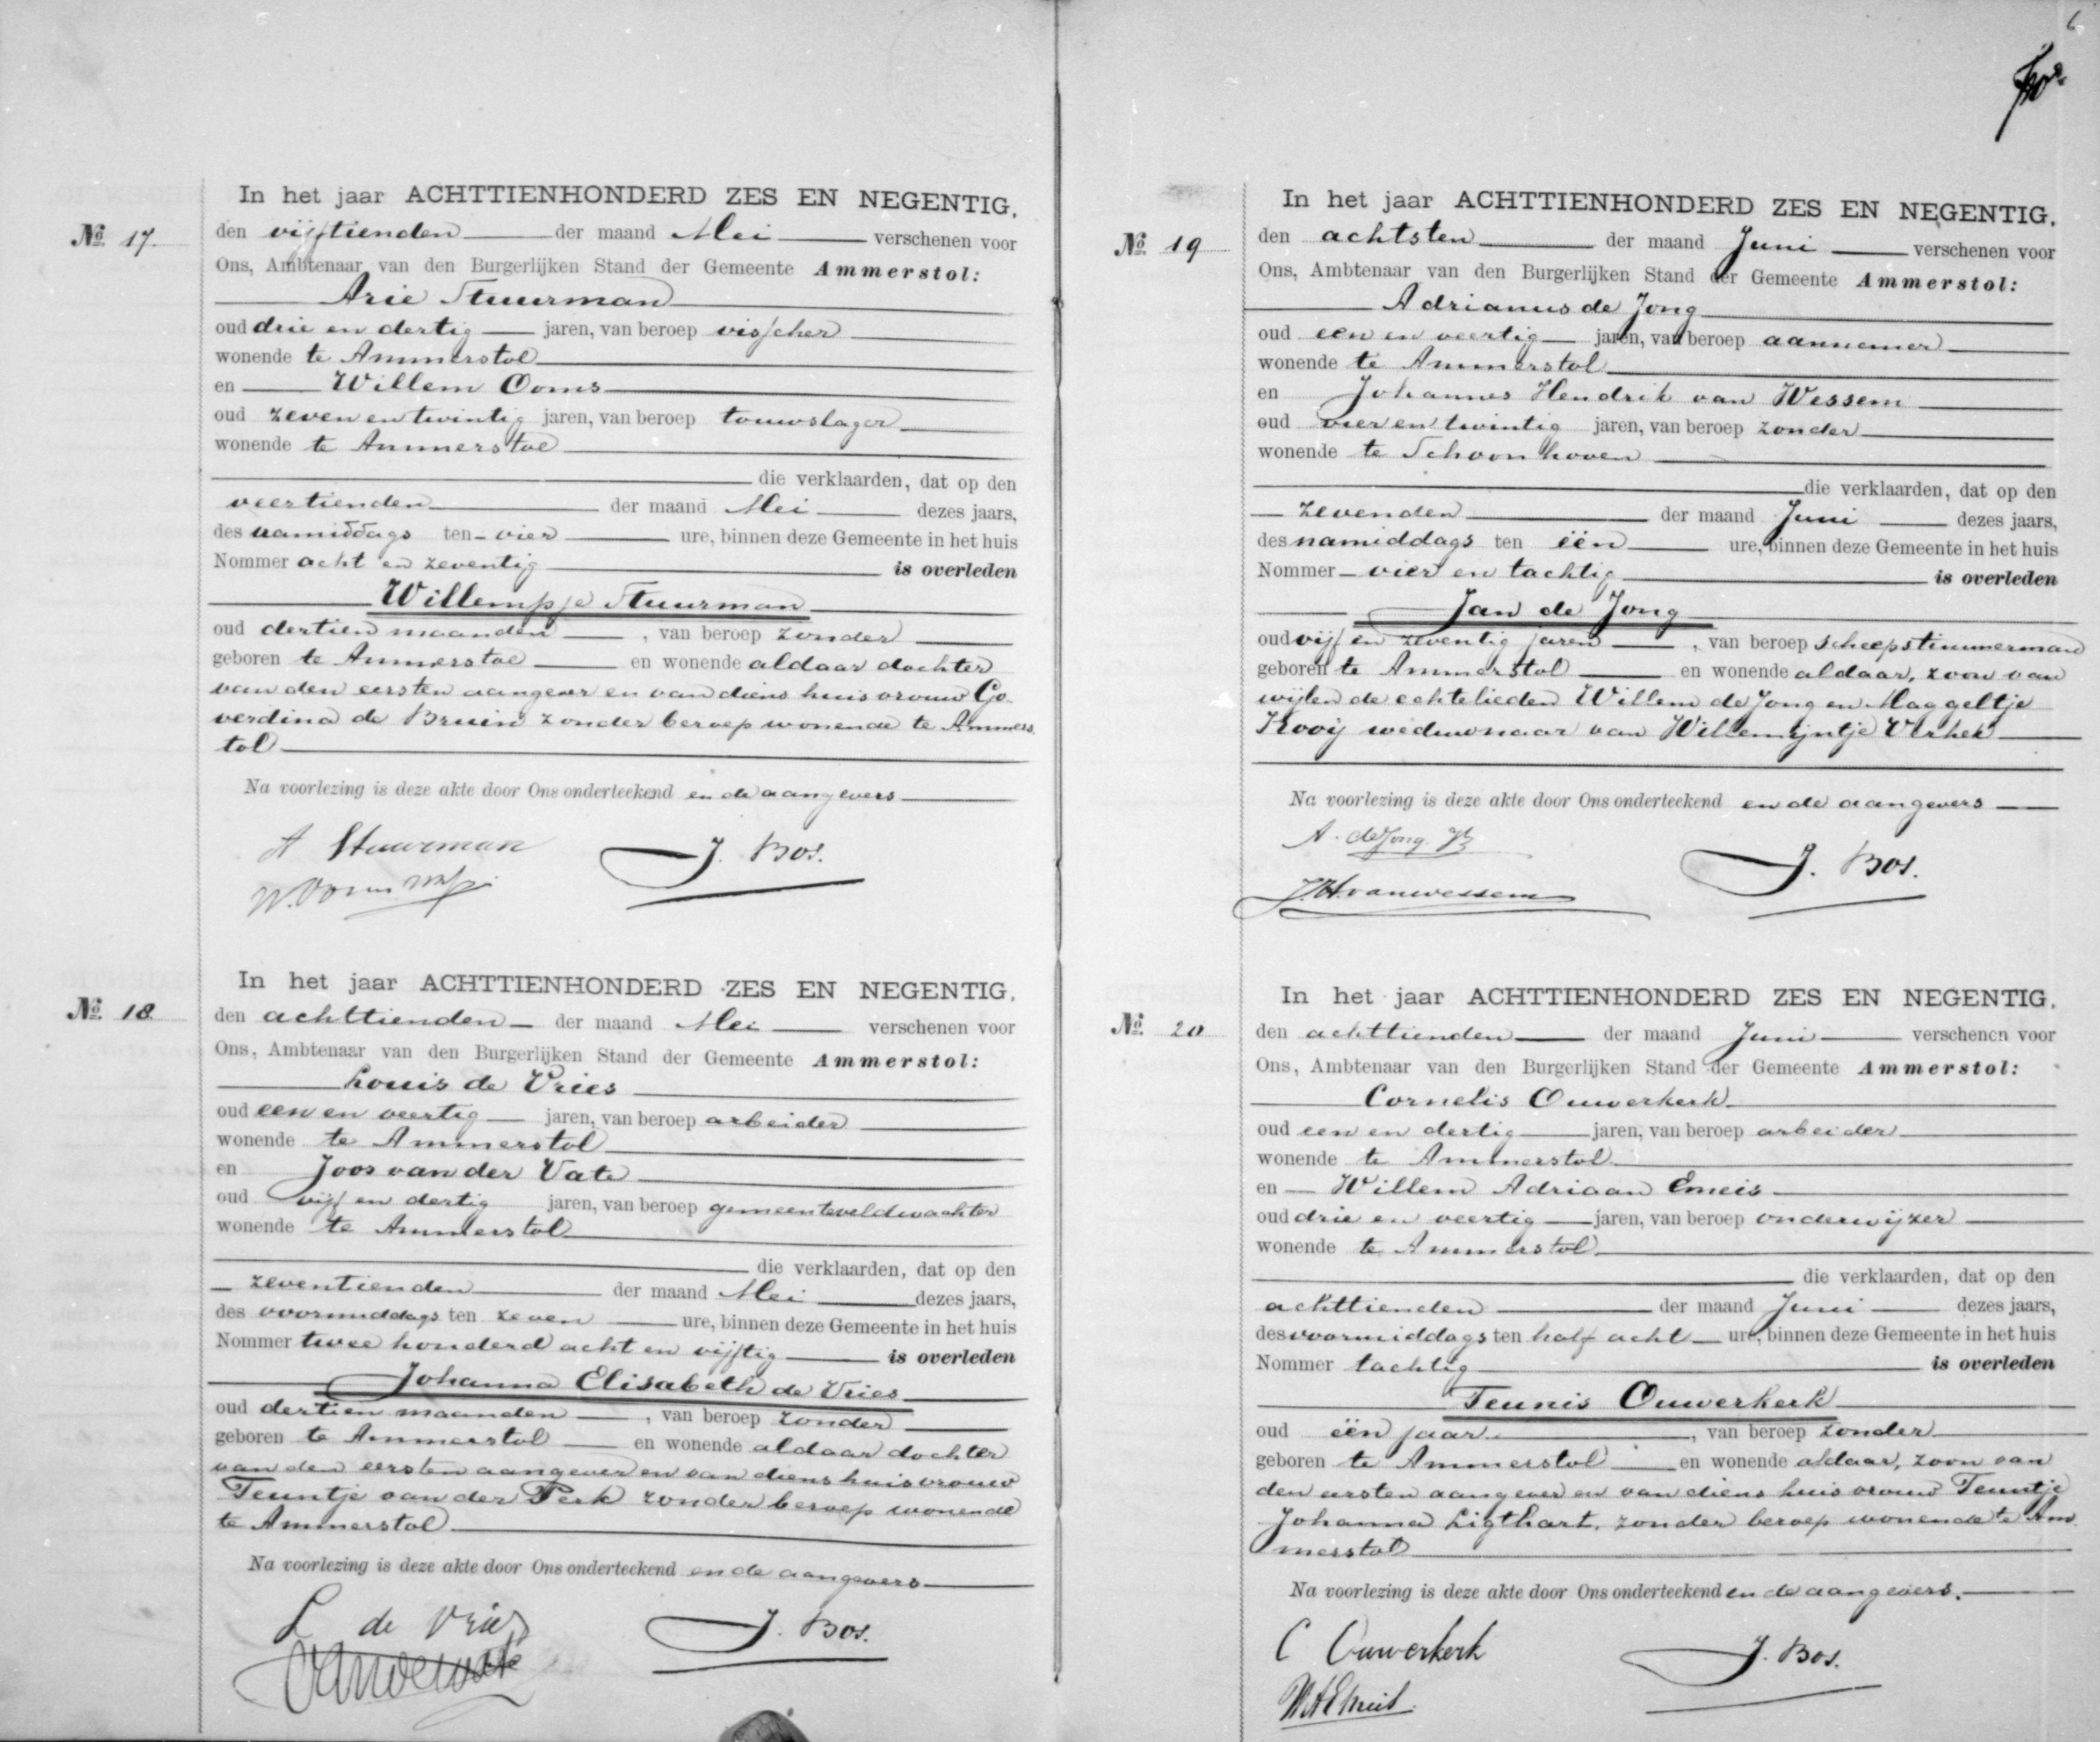 6
In het jaar ACHTTIENHONDERD ZES EN NEGENTIG,
No 17. den vijftienden der maand Mei verschenen voor
Ons, Ambtenaar van den Burgerlijken Stand der Gemeente Ammerstol:
Arie Stuurman
oud drie en dertig jaren, van beroep visscher
wonende te Ammerstol
en Willem Ooms
oud zeven en twintig jaren, van beroep touwslager
wonende te Ammerstol
die verklaarden, dat op den
veertienden der maand Mei dezes jaars,
des namiddags ten vier ure, binnen deze Gemeente in het huis
Nommer acht en zeventig is overleden
Willempje Stuurman
oud dertien maanden, van beroep zonder
geboren te Ammerstol en wonende aldaar dochter
van den eersten aangever en van diens huisvrouw Go-
verdina de Bruin zonder beroep wonende te Ammers
tol
Na voorlezing is deze akte door Ons onderteekend en de aangevers
A Stuurman
J. Bos.
W. Ooms
In het jaar ACHTTIENHONDERD ZES EN NEGENTIG,
No 18. den achttienden der maand Mei verschenen voor
Ons, Ambtenaar van den Burgerlijken Stand der Gemeente Ammerstol:
Louis de Vries
oud een en veertig jaren, van beroep arbeider
wonende te Ammerstol
en Joos van der Vate
oud vijf en dertig jaren, van beroep gemeenteveldwachter
wonende te Ammerstol
die verklaarden, dat op den
zeventienden der maand Mei dezes jaars,
des voormiddags ten zeven ure, binnen deze Gemeente in het huis
Nommer twee honderd acht en vijftig is overleden
Johanna Elisabeth de Vries
oud dertien maanden, van beroep zonder
geboren te Ammerstol en wonende aldaar dochter
van den eersten aangever en van diens huisvrouw
Teuntje van der Perk zonder beroep wonende
te Ammerstol
Na voorlezing is deze akte door Ons onderteekend en de aangevers
L de Vries
J. Bos.
In het jaar ACHTTIENHONDERD ZES EN NEGENTIG,
No 19 den achtsten der maand Juni verschenen voor
Ons, Ambtenaar van den Burgerlijken Stand der Gemeente Ammerstol:
Adrianus de Jong
oud een en veertig jaren, van beroep aannemer
wonende te Ammerstol
en Johannes Hendrik van Wessem
oud vier en twintig jaren, van beroep zonder
wonende te Schoonhoven
die verklaarden, dat op den
zevenden der maand Juni dezes jaars,
des namiddags ten één ure, binnen deze Gemeente in het huis
Nommer vier en tachtig is overleden
Jan de Jong
oud vijf en zeventig jaren, van beroep scheepstimmerman
geboren te Ammerstol en wonende aldaar, zoon van
wijlen de echtelieden Willem de Jong en Maggeltje
Kooij weduwnaar van Willemijntje Verhek
Na voorlezing is deze akte door Ons onderteekend en de aangevers
A. de Jong Jz
J. Bos.
J.H. van wessem
In het jaar ACHTTIENHONDERD ZES EN NEGENTIG,
No 20 den achttienden der maand Juni verschenen voor
Ons, Ambtenaar van den Burgerlijken Stand der Gemeente Ammerstol:
Cornelis Ouwerkerk
oud een en dertig jaren, van beroep arbeider
wonende te Ammerstol
en Willem Adriaan Emeis
oud drie en veertig jaren, van beroep onderwijzer
wonende te Ammerstol
die verklaarden, dat op den
achttienden der maand Juni dezes jaars,
des voormiddags ten half acht ure, binnen deze Gemeente in het huis
Nommer tachtig is overleden
Teunis Ouwerkerk
oud één jaar, van beroep zonder
geboren te Ammerstol en wonende aldaar, zoon van
den eersten aangever en van diens huisvrouw Teuntje
Johanna Ligthart, zonder beroep wonende te Am
merstol
Na voorlezing is deze akte door Ons onderteekend en de aangevers.
C Ouwerkerk
J. Bos.
WAEmeis